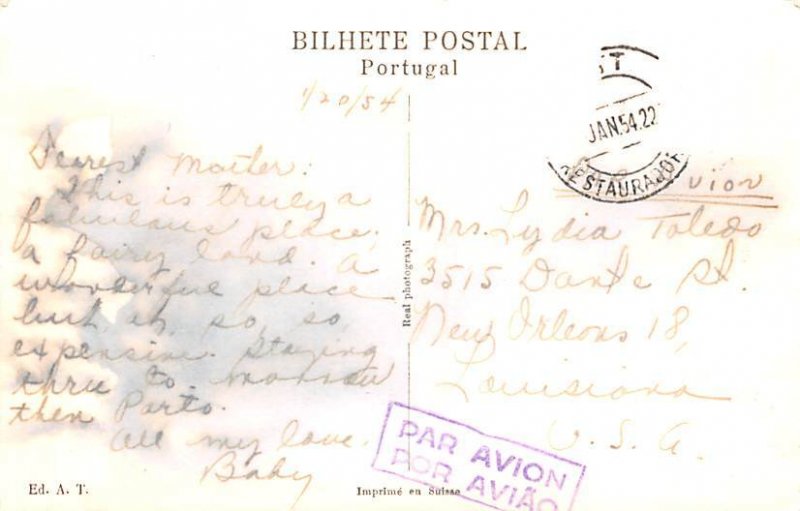 BILHETE POSTAL
Portugal
1/20/54
Dearest Mother:
This is truly a
fabulous place,
a fairy land. A
wonderful place
but, is, so, so,
expensive. Staying
thru to-morrow
then Porto.
All my love.
Baby
Ed. A. T.
Real photograph
Imprimé en Suisse
JAN.54.22
RESTAURADOR
vion
Mrs. Lydia Toledo
3515 Dante St.
New Orleans 18,
Louisiana
U. S. A.
PAR AVION
POR AVIÃO